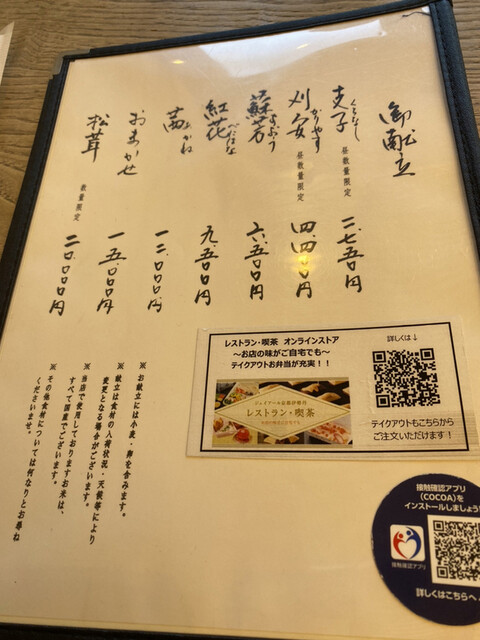 御献立
支子 くちなし 昼数量限定 二、七五〇円
刈安 かりやす 昼数量限定 四、四〇〇円
蘇芳 すおう 六、五〇〇円
紅花 べにばな 九、五〇〇円
茜 あかね 一二、〇〇〇円
おまかせ 一五、〇〇〇円
松茸 数量限定 二〇、〇〇〇円
※お献立には小麦・卵を含みます。
※献立は食材の入荷状況・天候等により
変更となる場合がございます。
※当店で使用しておりますお米は、
すべて国産でございます。
※その他食材については何なりとお尋ね
くださいませ。
レストラン・喫茶 オンラインストア
～お店の味がご自宅でも～
テイクアウトお弁当が充実！！
ジェイアール京都伊勢丹
レストラン・喫茶
詳しくは↓
テイクアウトもこちらから
ご注文いただけます！
接触確認アプリ
(COCOA)を
インストールしましょう!
接触確認アプリ
詳しくはこちらへ